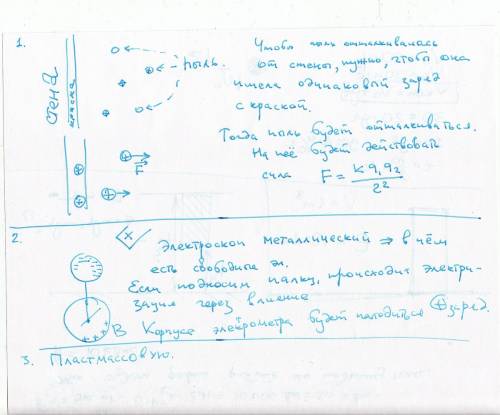 1.
стена
краска
пыль.
Чтобы пыль отталкивалась
от стены, нужно, чтобы она
имела одинаковый заряд
с краской.
Тогда пыль будет отталкиваться.
На неё будет действовать
сила F = k q1 q2 / r²
F
2.
(x) Электроскоп металлический ⇒ в нём
есть свободные эл.
Если подносим палку, происходит электри-
зация через влияние
В корпусе электрометра будет находиться (+) заряд.
3. Пластмассовую.